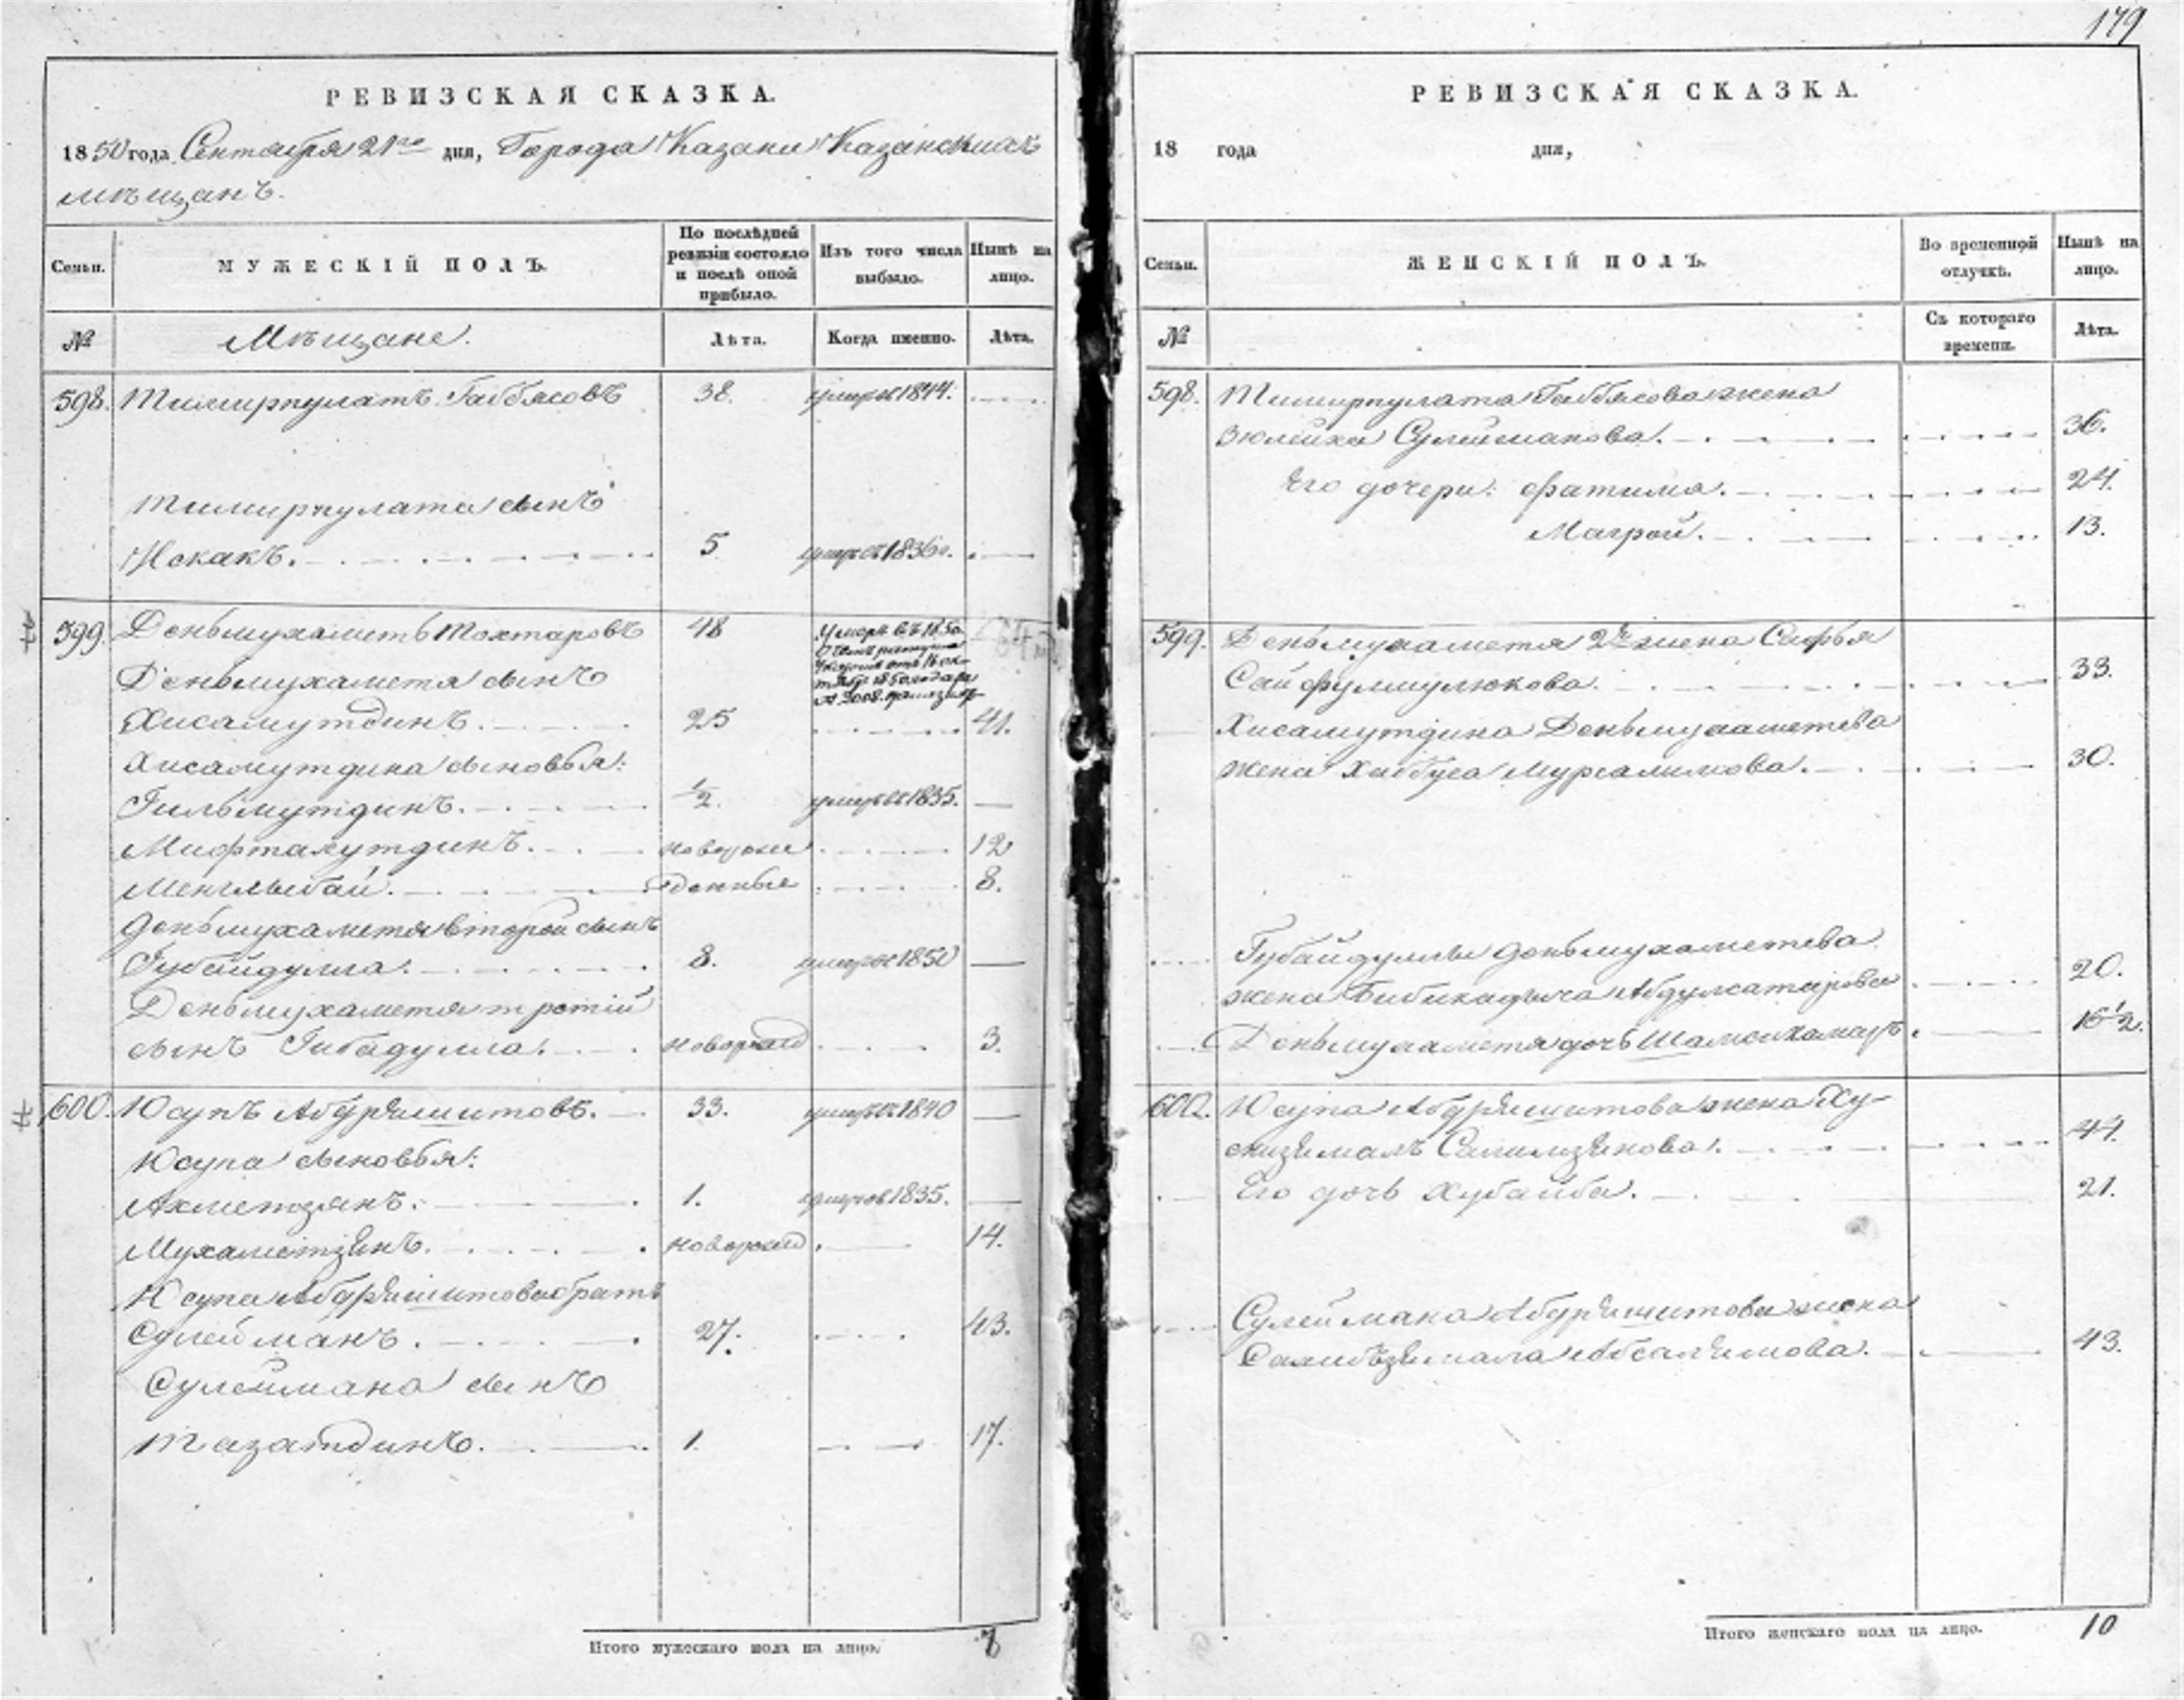 179
РЕВИЗСКАЯ СКАЗКА.
1850 года Сентября 21го дня, Города Казани Казанскихъ
мѣщанъ.
Семьи.
МУЖЕСКІЙ ПОЛЪ.
По послѣдней
ревизіи состояло
и послѣ оной
прибыло.
Изъ того числа
выбыло.
Нынѣ на
лицо.
№
Мѣщане.
Лѣта.
Когда именно.
Лѣта.
598. Тимирпулатъ Габбясовъ 38. умеръ въ 1844.
Тимирпулата сынъ
Искакъ. 5 умеръ въ 1836г.
599. Деньмухаметь Тохтаровъ 48 Умеръ въ 1850
Деньмухаметя сынъ
Хисамутдинъ. 25 41.
Хисамутдина сыновья:
Гильмутдинъ. 1/2. умеръ въ 1835.
Мифтахутдинъ. новорож 12
Менглыбай. денные 8.
Деньмухаметя второй сынъ
Губайдулла. 8. умеръ въ 1850
Деньмухаметя третій
сынъ Гибадулла. новорожд 3.
600. Юсупъ Абдряшитовъ. 33. умеръ въ 1840
Юсупа сыновья:
Ахметзянъ. 1. умеръ въ 1835.
Мухаметзянъ. новорожд 14.
Юсупа Абдряшитова братъ
Сулейманъ. 27. 43.
Сулеймана сынъ
Тазатдинъ. 1. 17.
Итого мужескаго пола на лицо. 7
РЕВИЗСКАЯ СКАЗКА.
18 года дня,
Семьи.
ЖЕНСКІЙ ПОЛЪ.
Во временной
отлучкѣ.
Нынѣ на
лицо.
№
Съ котораго
времени.
Лѣта.
598. Тимирпулата Габбясова жена
Зюлейха Сулейманова. 36.
Его дочери: Фатима. 24.
Магрой. 13.
599. Деньмухаметя 2я жена Сафья
Сайфулмулюкова. 33.
Хисамутдина Деньмухаметева
жена Хаббуса Мургалимова. 30.
Губайдуллы Деньмухаметева
жена Бибикадыча Абдулсатарова 20.
Деньмухаметя дочь Шамсихамаръ 16 1/2.
600. Юсупа Абдряшитова жена Ху-
снизямалъ Салимзянова. 44.
Его дочь Хубайба. 21.
Сулеймана Абдряшитова жена
Сахибзямала Абсалямова. 43.
Итого женскаго пола на лицо. 10